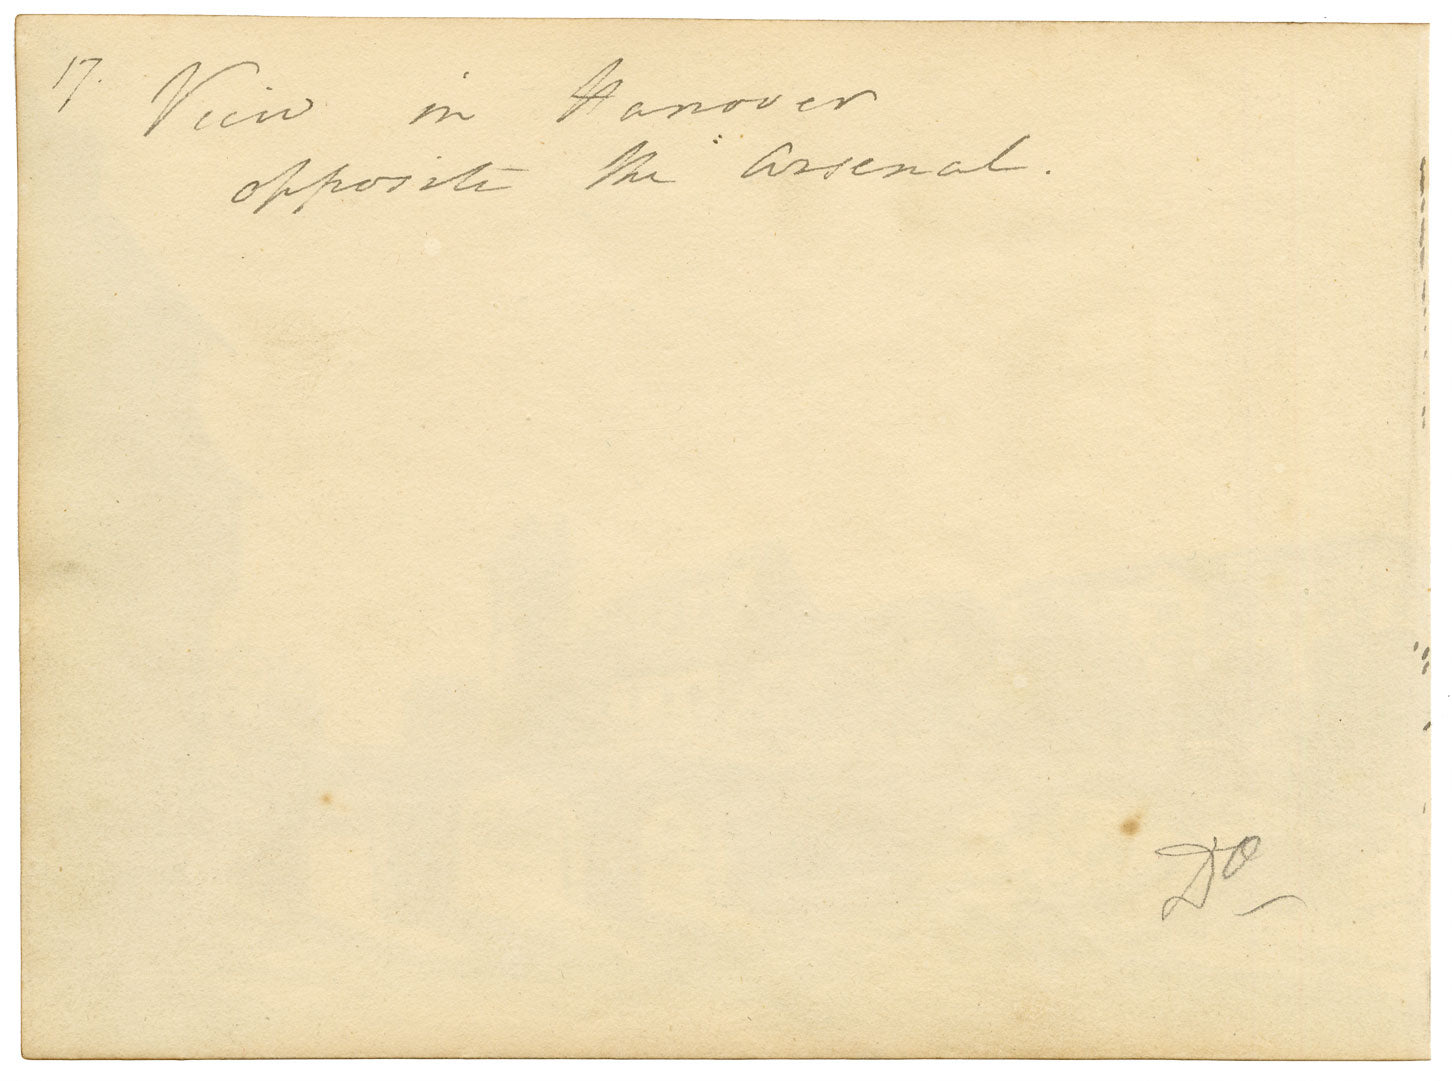 17. View in Hanover
opposite the Arsenal.
Do